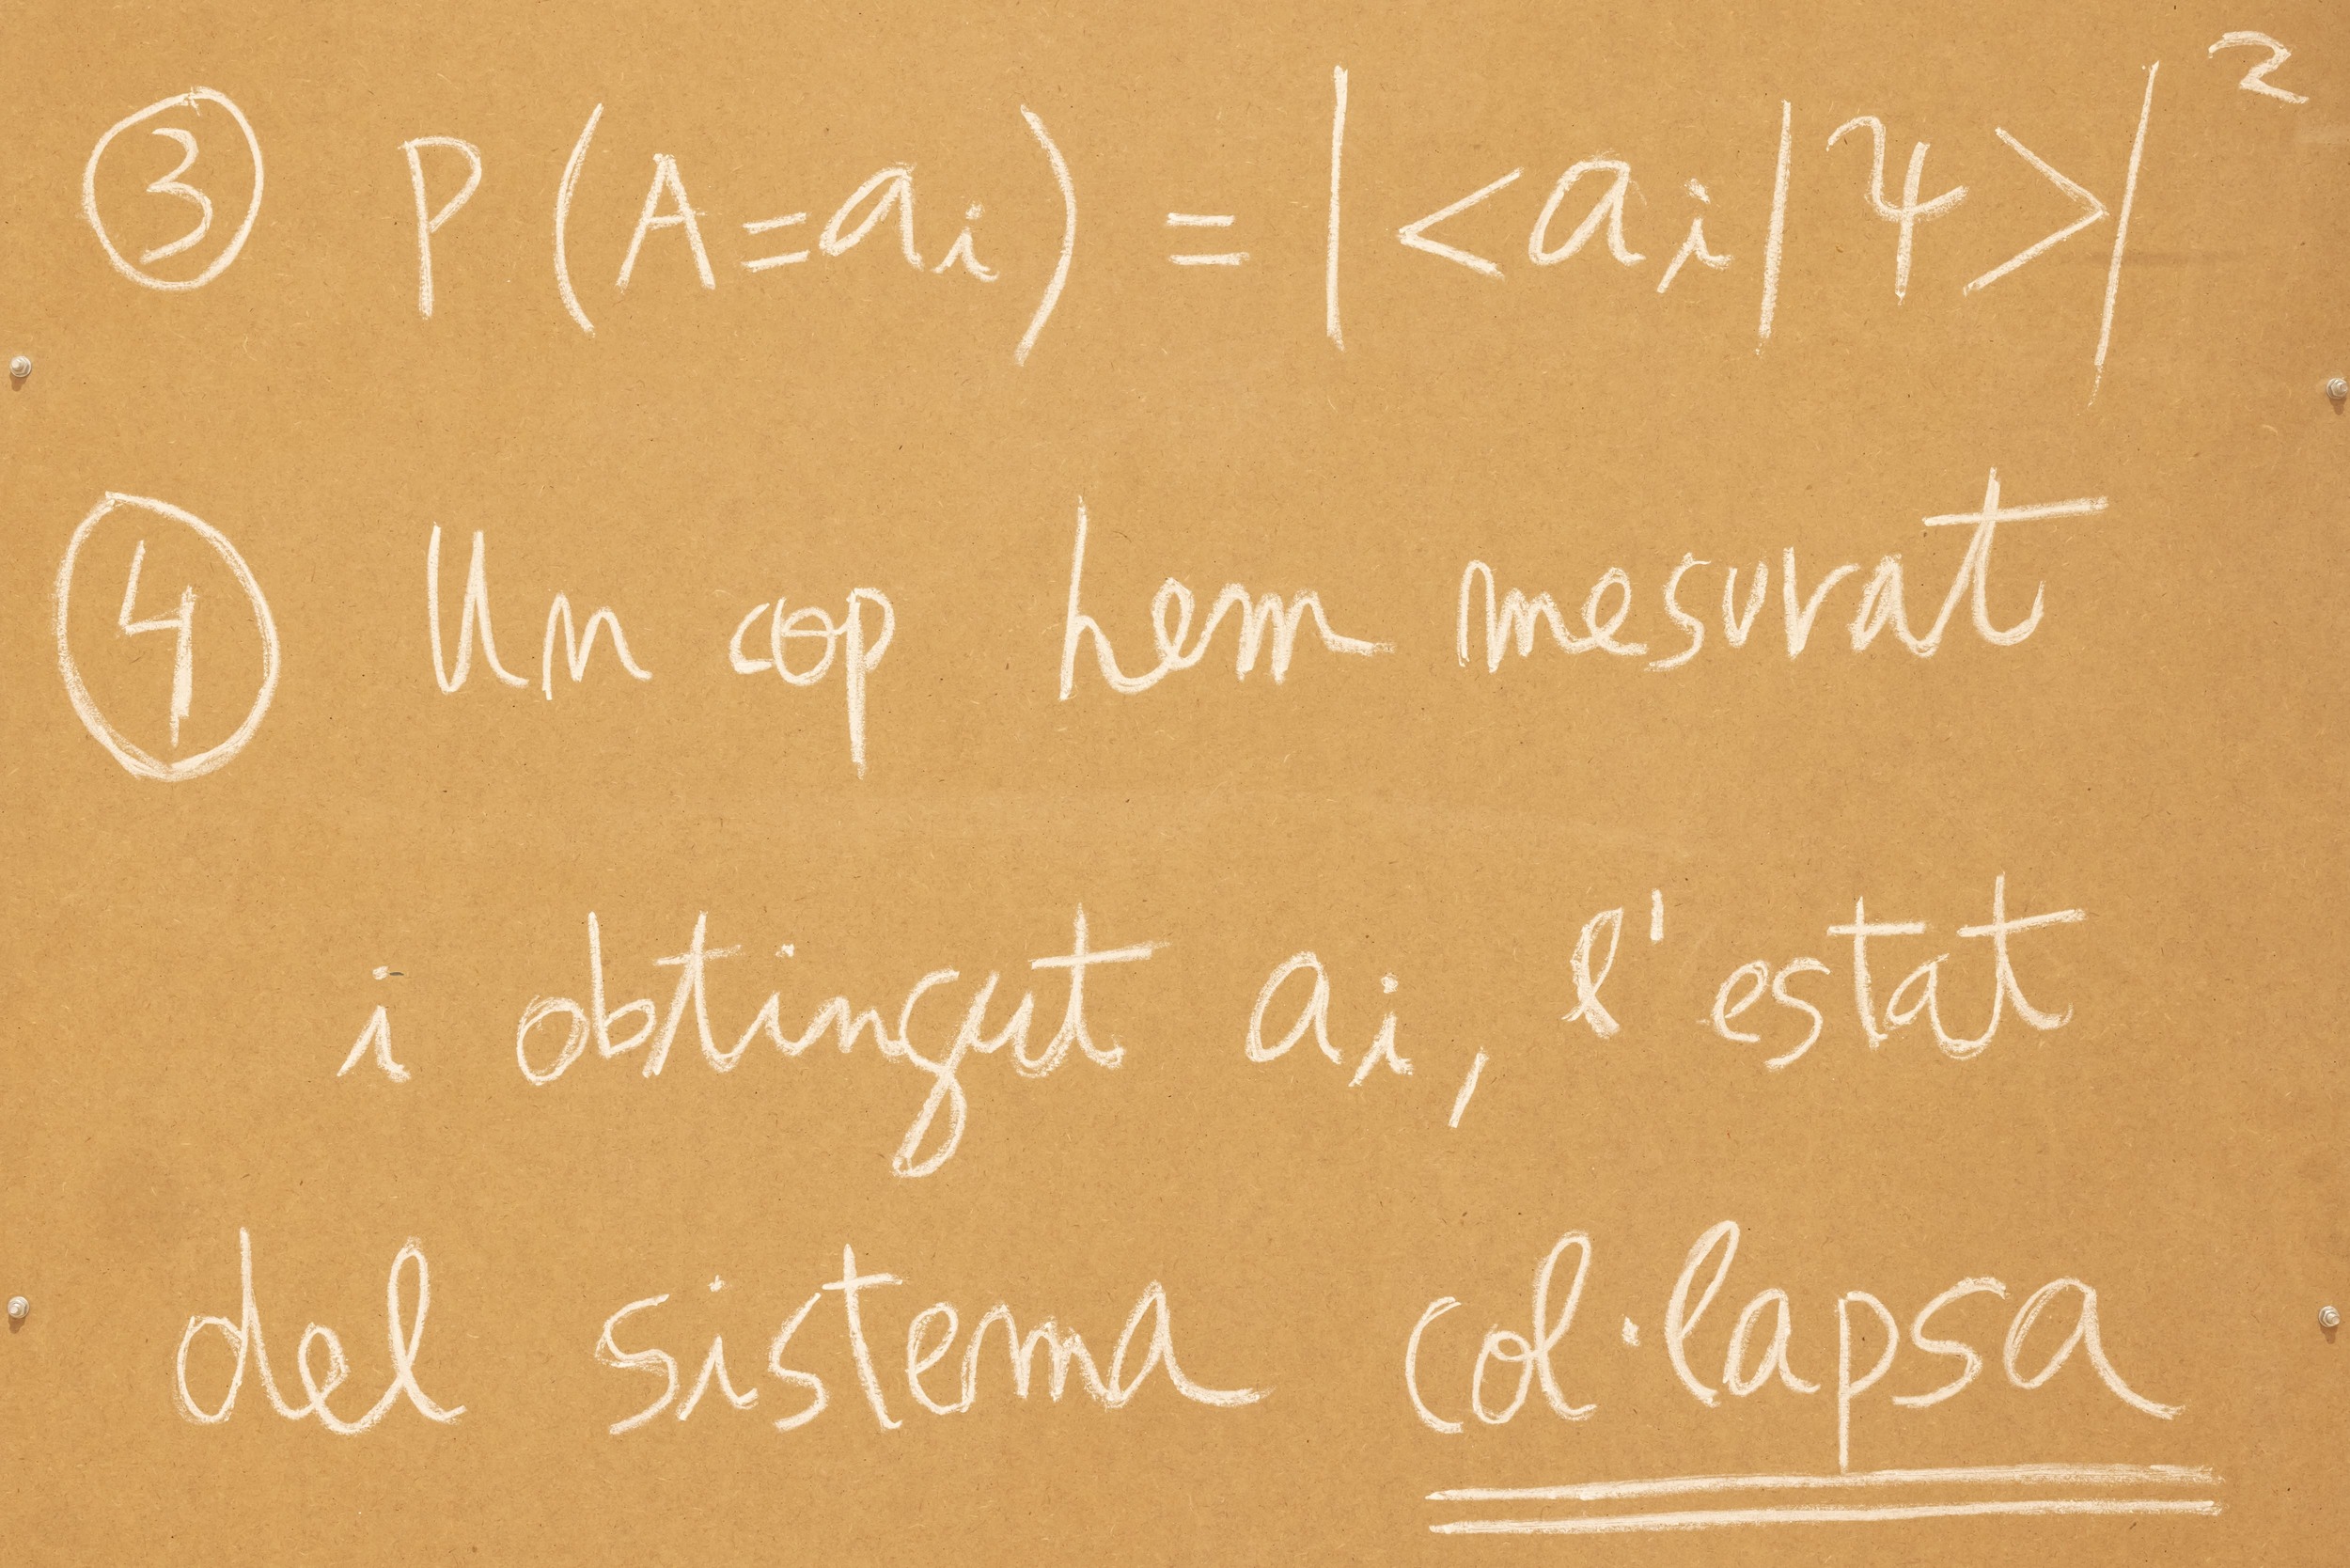 ③ P(A=aᵢ) = |<aᵢ|Ψ>|²
④ Un cop hem mesurat
i obtingut aᵢ, l'estat
del sistema col·lapsa